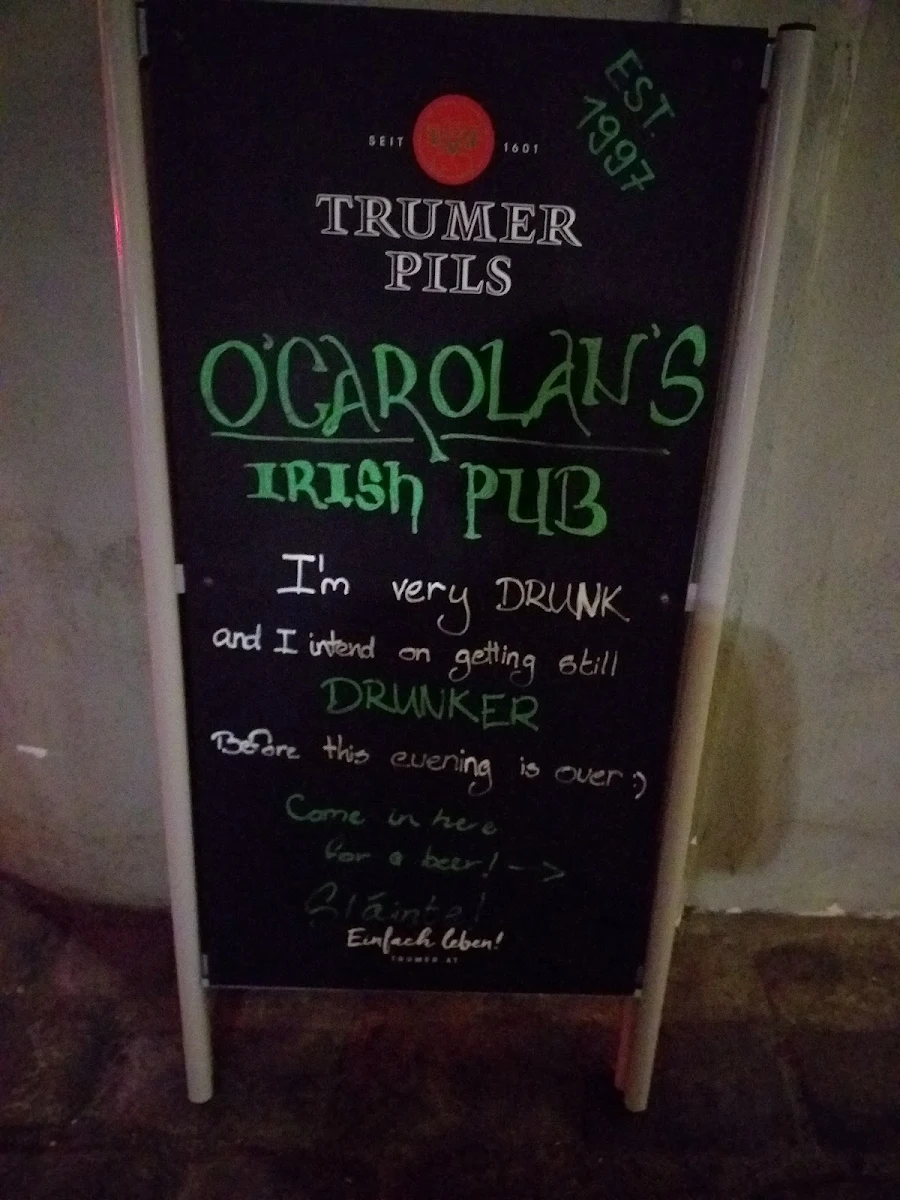 EST.
1997
SEIT 1601
TRUMER
PILS
O'CAROLAN'S
IRISH PUB
I'm very DRUNK
and I intend on getting still
DRUNKER
Before this evening is over :)
Come in here
for a beer! -->
Sláinte!
Einfach leben!
TRUMER.AT